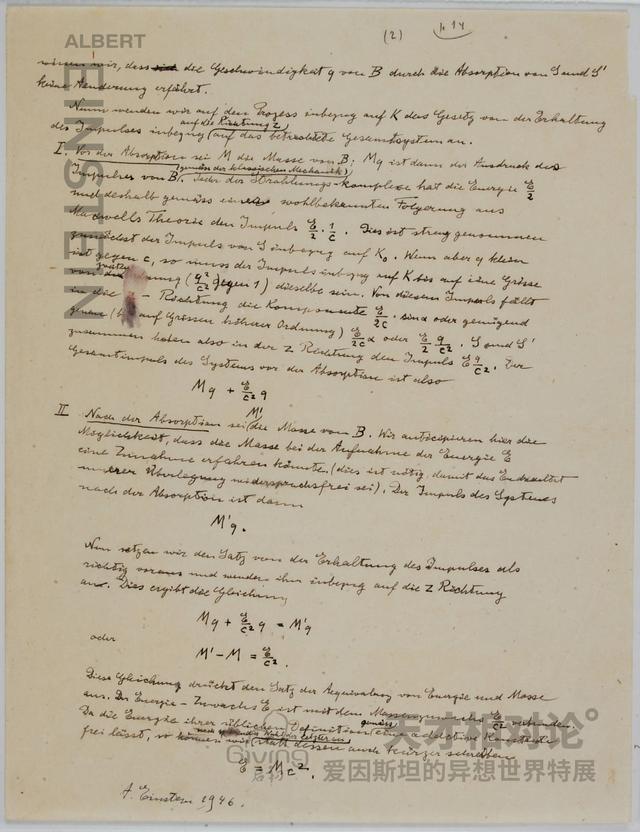 (2)
p. 14
ALBERT
EINSTEIN
wissen wir, dass die Geschwindigkeit q von B durch die Absorption von S und S'
keine Aenderung erfährt.
Nun wenden wir auf den Prozess inbezug auf K das Gesetz von der Erhaltung
auf die Richtung z
des Impulses inbezug (auf das betrachtete Gesamtsystem an.
I. Vor der Absorption sei M die Masse von B; Mq ist dann der Ausdruck des
(gemäss der klassischen Mechanik)
Impulses von B. Jeder der Strahlungs-komplexe hat die Energie E/2
und deshalb gemäss einer wohlbekannten Folgerung aus
Maxwells Theorie den Impuls E/2 · 1/c. Dies ist streng genommen
zunächst der Impuls von S inbezug auf K₀. Wenn aber q klein
ist gegen c, so muss der Impuls inbezug auf K bis auf eine Grösse
von zweiter (q²/c² gegen 1) dieselbe sein. Von diesem Impuls fällt
in die - Richtung die Komponente E/2c · sin α oder genügend
genau (auf Grössen höherer Ordnung) E/2c α oder E/2 q/c². S und S'
zusammen haben also in der z Richtung den Impuls E q/c². Der
Gesamtimpuls des Systems vor der Absorption ist also
Mq + E/c² q
II. Nach der Absorption sei M' die Masse von B. Wir anticipieren hier die
Möglichkeit, dass die Masse bei der Aufnahme der Energie E
eine Zunahme erfahren könnte (dies ist nötig, damit das Endresultat
unserer Überlegung widerspruchsfrei sei). Der Impuls des Systems
nach der Absorption ist dann
M'q.
Nun setzen wir den Satz von der Erhaltung des Impulses als
richtig voraus und wenden ihn inbezug auf die z Richtung
an. Dies ergibt die Gleichung
Mq + E/c² q = M'q
oder
M' - M = E/c².
Diese Gleichung drückt den Satz der Aequivalenz von Energie und Masse
aus. Der Energie-Zuwachs E ist mit dem Massenzuwachs E/c² verbunden.
Da die Energie ihrer üblichen Definition gemäss eine additive Konstante
frei lässt, so können wir nach der Wahl der letzteren statt dessen auch kürzer schreiben
E = Mc².
A. Einstein 1946.
Giving
天才相对论
爱因斯坦的异想世界特展